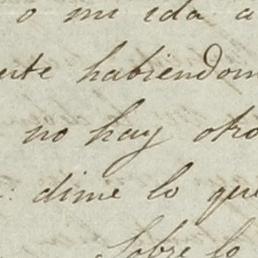 o mi ida a
nte habiendom
no hay otro
dime lo que
Sobre lo